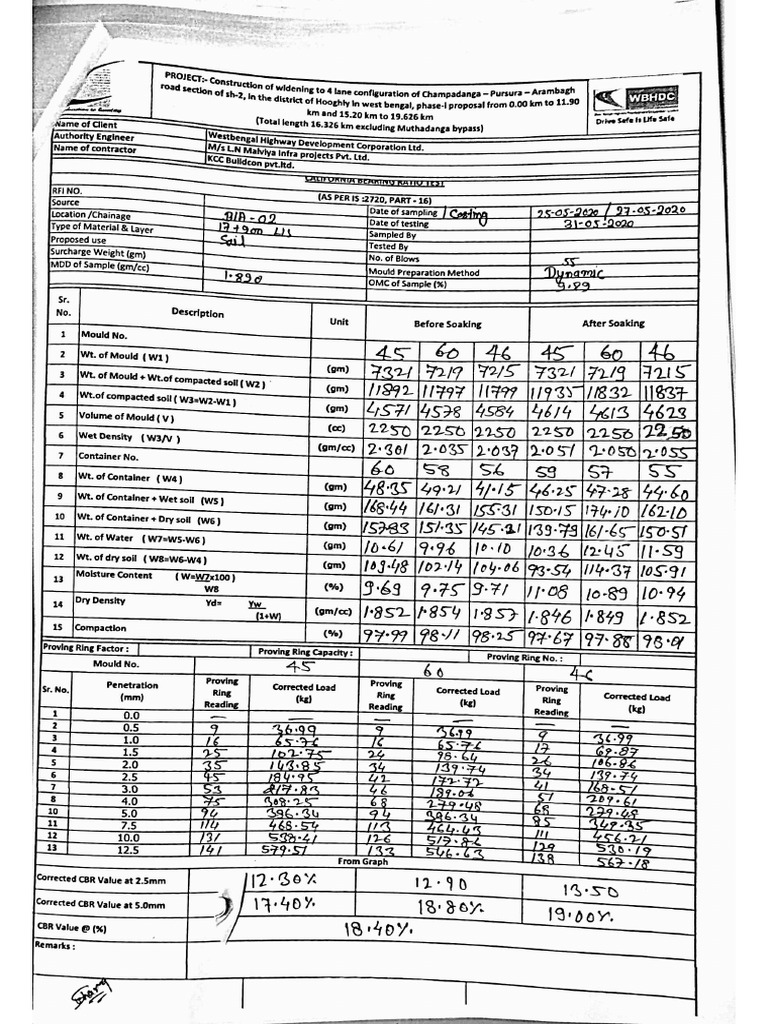 PROJECT:- Construction of widening to 4 lane configuration of Champadanga – Pursura – Arambagh
road section of sh-2, in the district of Hooghly in west bengal, phase-I proposal from 0.00 km to 11.90
km and 15.20 km to 19.626 km
(Total length 16.326 km excluding Muthadanga bypass)
WBHDC
Drive Safe is Life Safe
Name of Client
Authority Engineer Westbengal Highway Development Corporation Ltd.
Name of contractor M/s L.N Malviya Infra projects Pvt. Ltd.
KCC Buildcon pvt.ltd.
CALIFORNIA BEARING RATIO TEST
(AS PER IS :2720, PART - 16)
RFI NO.
Source
Location /Chainage BIA-02 Date of sampling / Casting 25-05-2020 / 27-05-2020
Type of Material & Layer 17+900 LHS Date of testing 31-05-2020
Proposed use Soil Sampled By
Surcharge Weight (gm) Tested By
MDD of Sample (gm/cc) 1.890 No. of Blows 55
Mould Preparation Method Dynamic
OMC of Sample (%) 9.89
Sr. No. Description Unit Before Soaking After Soaking
1 Mould No. 45 60 46 45 60 46
2 Wt. of Mould ( W1 ) (gm) 7321 7219 7215 7321 7219 7215
3 Wt. of Mould + Wt.of compacted soil ( W2 ) (gm) 11892 11797 11799 11935 11832 11837
4 Wt.of compacted soil ( W3=W2-W1 ) (gm) 4571 4578 4584 4614 4613 4623
5 Volume of Mould ( V ) (cc) 2250 2250 2250 2250 2250 2250
6 Wet Density ( W3/V ) (gm/cc) 2.301 2.035 2.037 2.051 2.050 2.055
7 Container No. 60 58 56 59 57 55
8 Wt. of Container ( W4 ) (gm) 48.35 49.21 41.15 46.25 47.28 44.60
9 Wt. of Container + Wet soil (W5 ) (gm) 168.44 161.31 155.31 150.15 174.10 162.10
10 Wt. of Container + Dry soil (W6 ) (gm) 157.83 151.35 145.21 139.79 161.65 150.51
11 Wt. of Water ( W7=W5-W6 ) (gm) 10.61 9.96 10.10 10.36 12.45 11.59
12 Wt. of dry soil ( W8=W6-W4 ) (gm) 109.48 102.14 104.06 93.54 114.37 105.91
13 Moisture Content ( W=W7x100 ) (%) 9.69 9.75 9.71 11.08 10.89 10.94
W8
14 Dry Density Yd= Yw (gm/cc) 1.852 1.854 1.857 1.846 1.849 1.852
(1+W)
15 Compaction (%) 97.99 98.11 98.25 97.67 97.88 98.01
Proving Ring Factor : Proving Ring Capacity : Proving Ring No. :
Mould No. 45 60 46
Sr. No. Penetration (mm) Proving Ring Reading Corrected Load (kg) Proving Ring Reading Corrected Load (kg) Proving Ring Reading Corrected Load (kg)
1 0.0 — — — — — —
2 0.5 9 36.99 9 36.99 9 36.99
3 1.0 16 65.76 16 65.76 17 69.87
4 1.5 25 102.75 24 98.64 26 106.86
5 2.0 35 143.85 34 139.74 34 139.74
6 2.5 45 184.95 42 172.72 41 168.51
7 3.0 53 217.83 46 189.06 51 209.61
8 4.0 75 308.25 68 279.48 68 279.48
9 5.0 94 396.34 94 396.34 85 349.35
11 7.5 114 468.54 113 464.43 111 456.21
12 10.0 131 538.41 126 517.86 129 530.19
13 12.5 141 579.51 133 546.63 138 567.18
From Graph
Corrected CBR Value at 2.5mm 12.30% 12.90 13.50
Corrected CBR Value at 5.0mm 17.40% 18.80% 19.00%
CBR Value @ (%) 18.40%
Remarks :